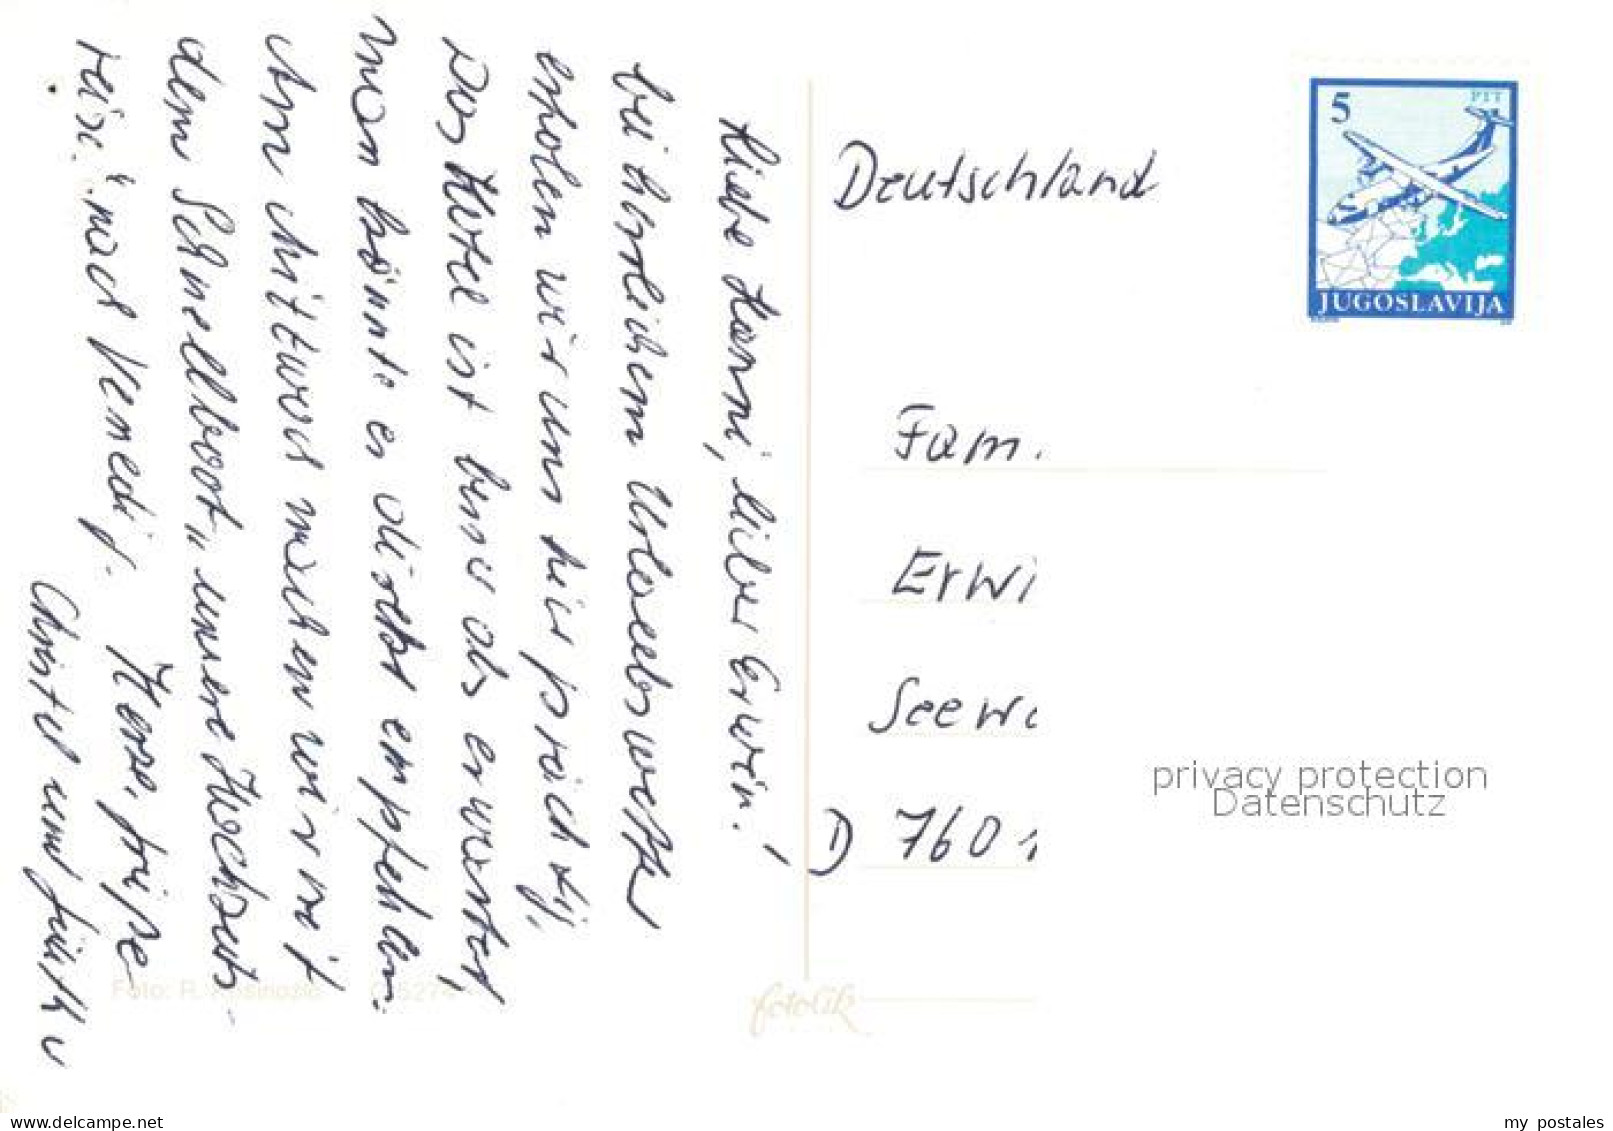 Liebe Hanni, lieber Erwin!
bei herrlichem Urlaubswetter
erholen wir uns hier prächtig,
Das Hotel ist besser als erwartet,
man könnte es direkt empfehlen.
Am Mittwoch machen wir mit
dem Schnellboot „unsere Hochzeits-
reise" nach Venedig. Herzl. Grüße
Christel und Günther
Deutschland
5
PTT
JUGOSLAVIJA
Fam.
Erwi
Seewa
D 7601
privacy protection
Datenschutz
Foto: R. Kosinožić
fotolik
my postales